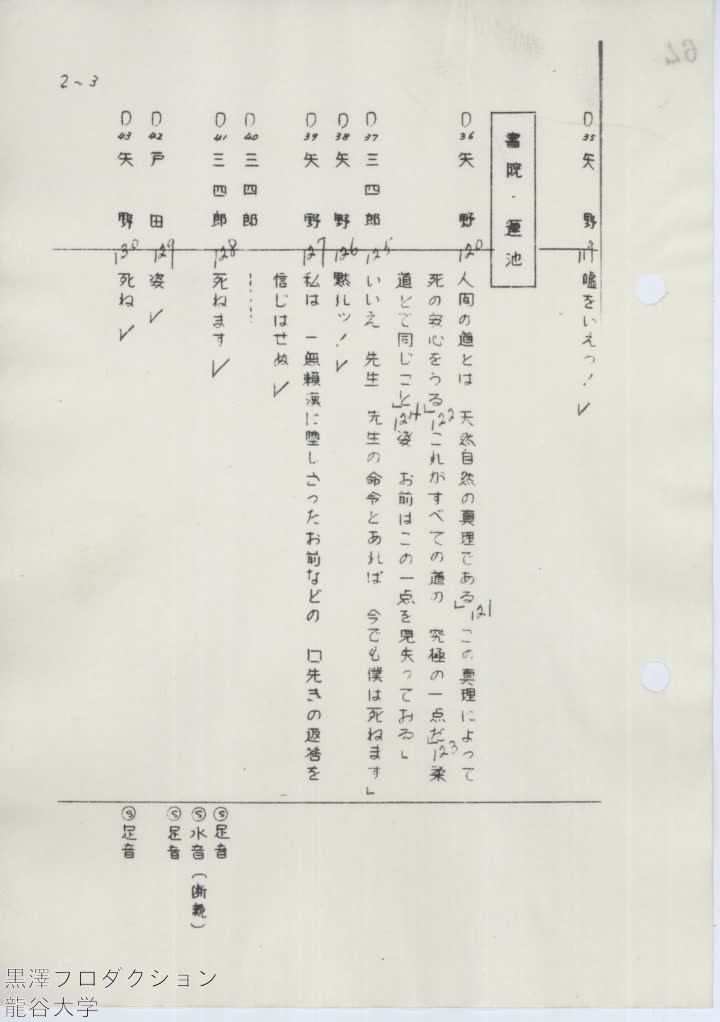 64
2~3
D35 矢野 119 嘘をいえっ! ✓
書院・蓮池
D36 矢野 120 人間の道とは 天然自然の真理である」121 この真理によって
死の安心をうる」122 これがすべての道の 究極の一点だ」123 柔
道とて同じこと」124 姿 お前はこの一点を見失っておる」
D37 三四郎 125 いいえ 先生 先生の命令とあれば 今でも僕は死ねます」
D38 矢野 126 黙ルッ! ✓
D39 矢野 127 私は 一無頼漢に堕しさったお前などの 口先きの返答を
信じはせぬ ✓
D40 三四郎 ……
D41 三四郎 128 死ねます ✓
D42 戸田 129 姿 ✓
D43 矢野 130 死ね ✓
⑤足音
⑤水音(断続)
⑤足音
③足音
黒澤フロダクション
龍谷大学